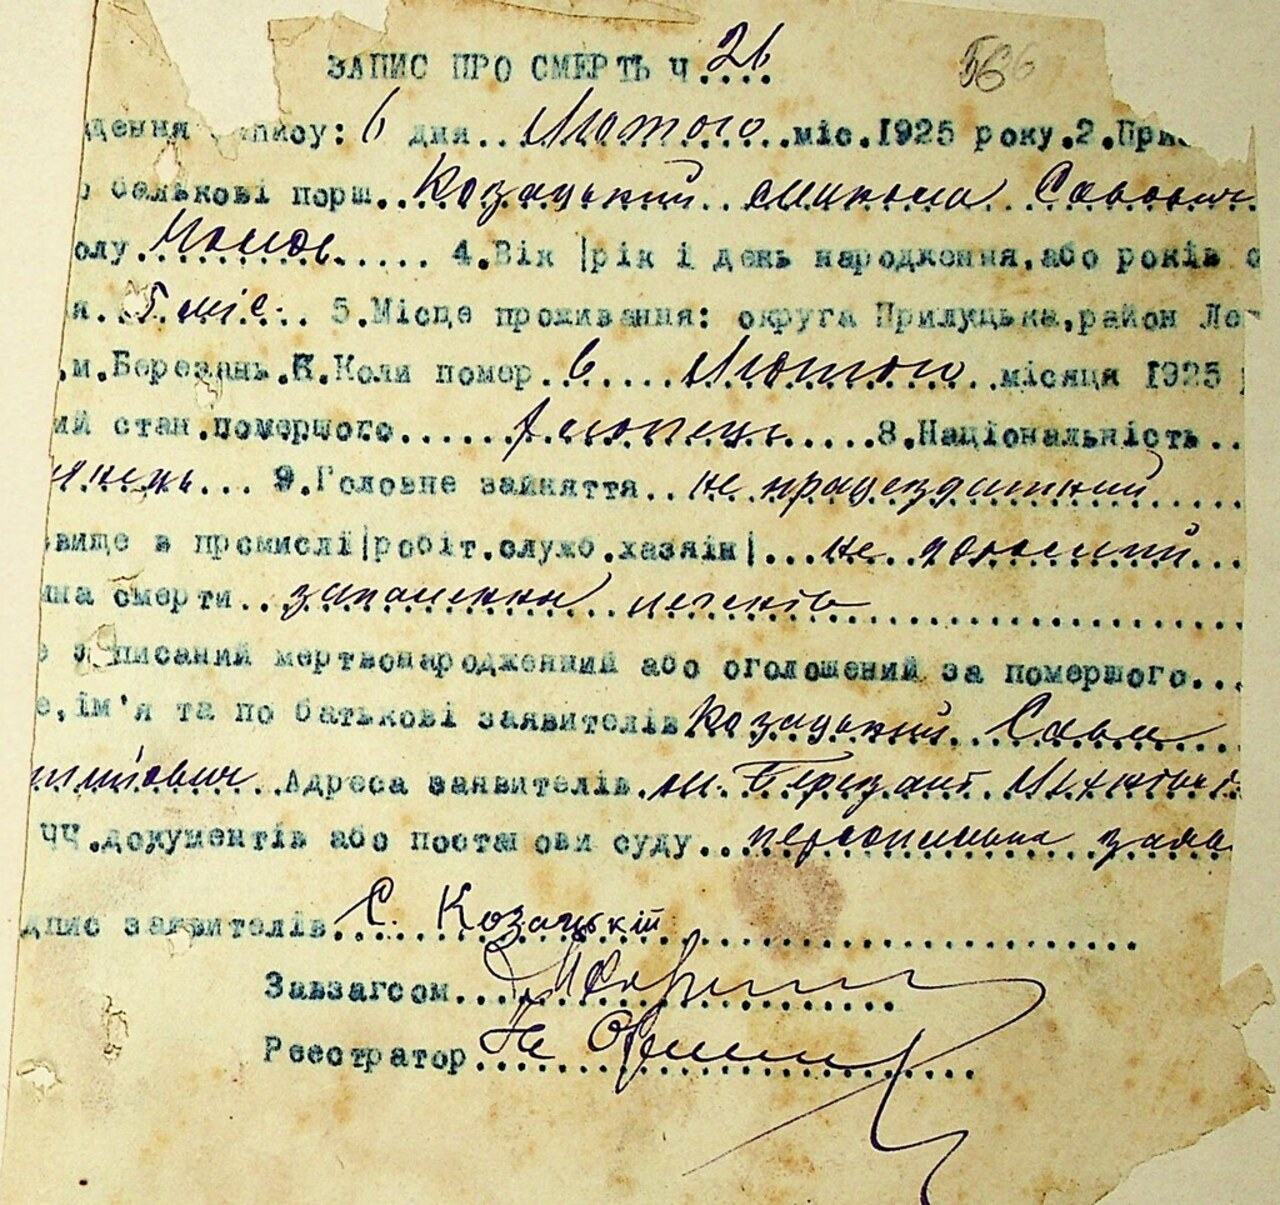 ЗАПИС ПРО СМЕРТЬ Ч.26
дення запису: 6 дня..Лютого..міс.1925 року.2.Прі
батькові порш..Козацький Микола Савович
олу.......... 4.Вік |рік і день народження,або років
я..5 міс... 5.Місце проживання: округа Прилуцька,район
.м.Березань.6.Коли помер..6....Лютого..місяця 1925
ий стан.помершого......хлопець.....8.Національність..
їнець... 9.Головне заняття..не працездатний.....
вище в промислі|робіт.служб.хазяін|...не .......
ина смерти..запалення легенів
записаний мертвонароджений або оголошений за помершого...
е,ім'я та по батькові заявителів Козацький Сава
Адреса заявителів.м. Березань
ЧЧ.документів або постанови суду..персональна заяв
дпис заявителів.С. Козацькій
Завзагсом
Реєстратор